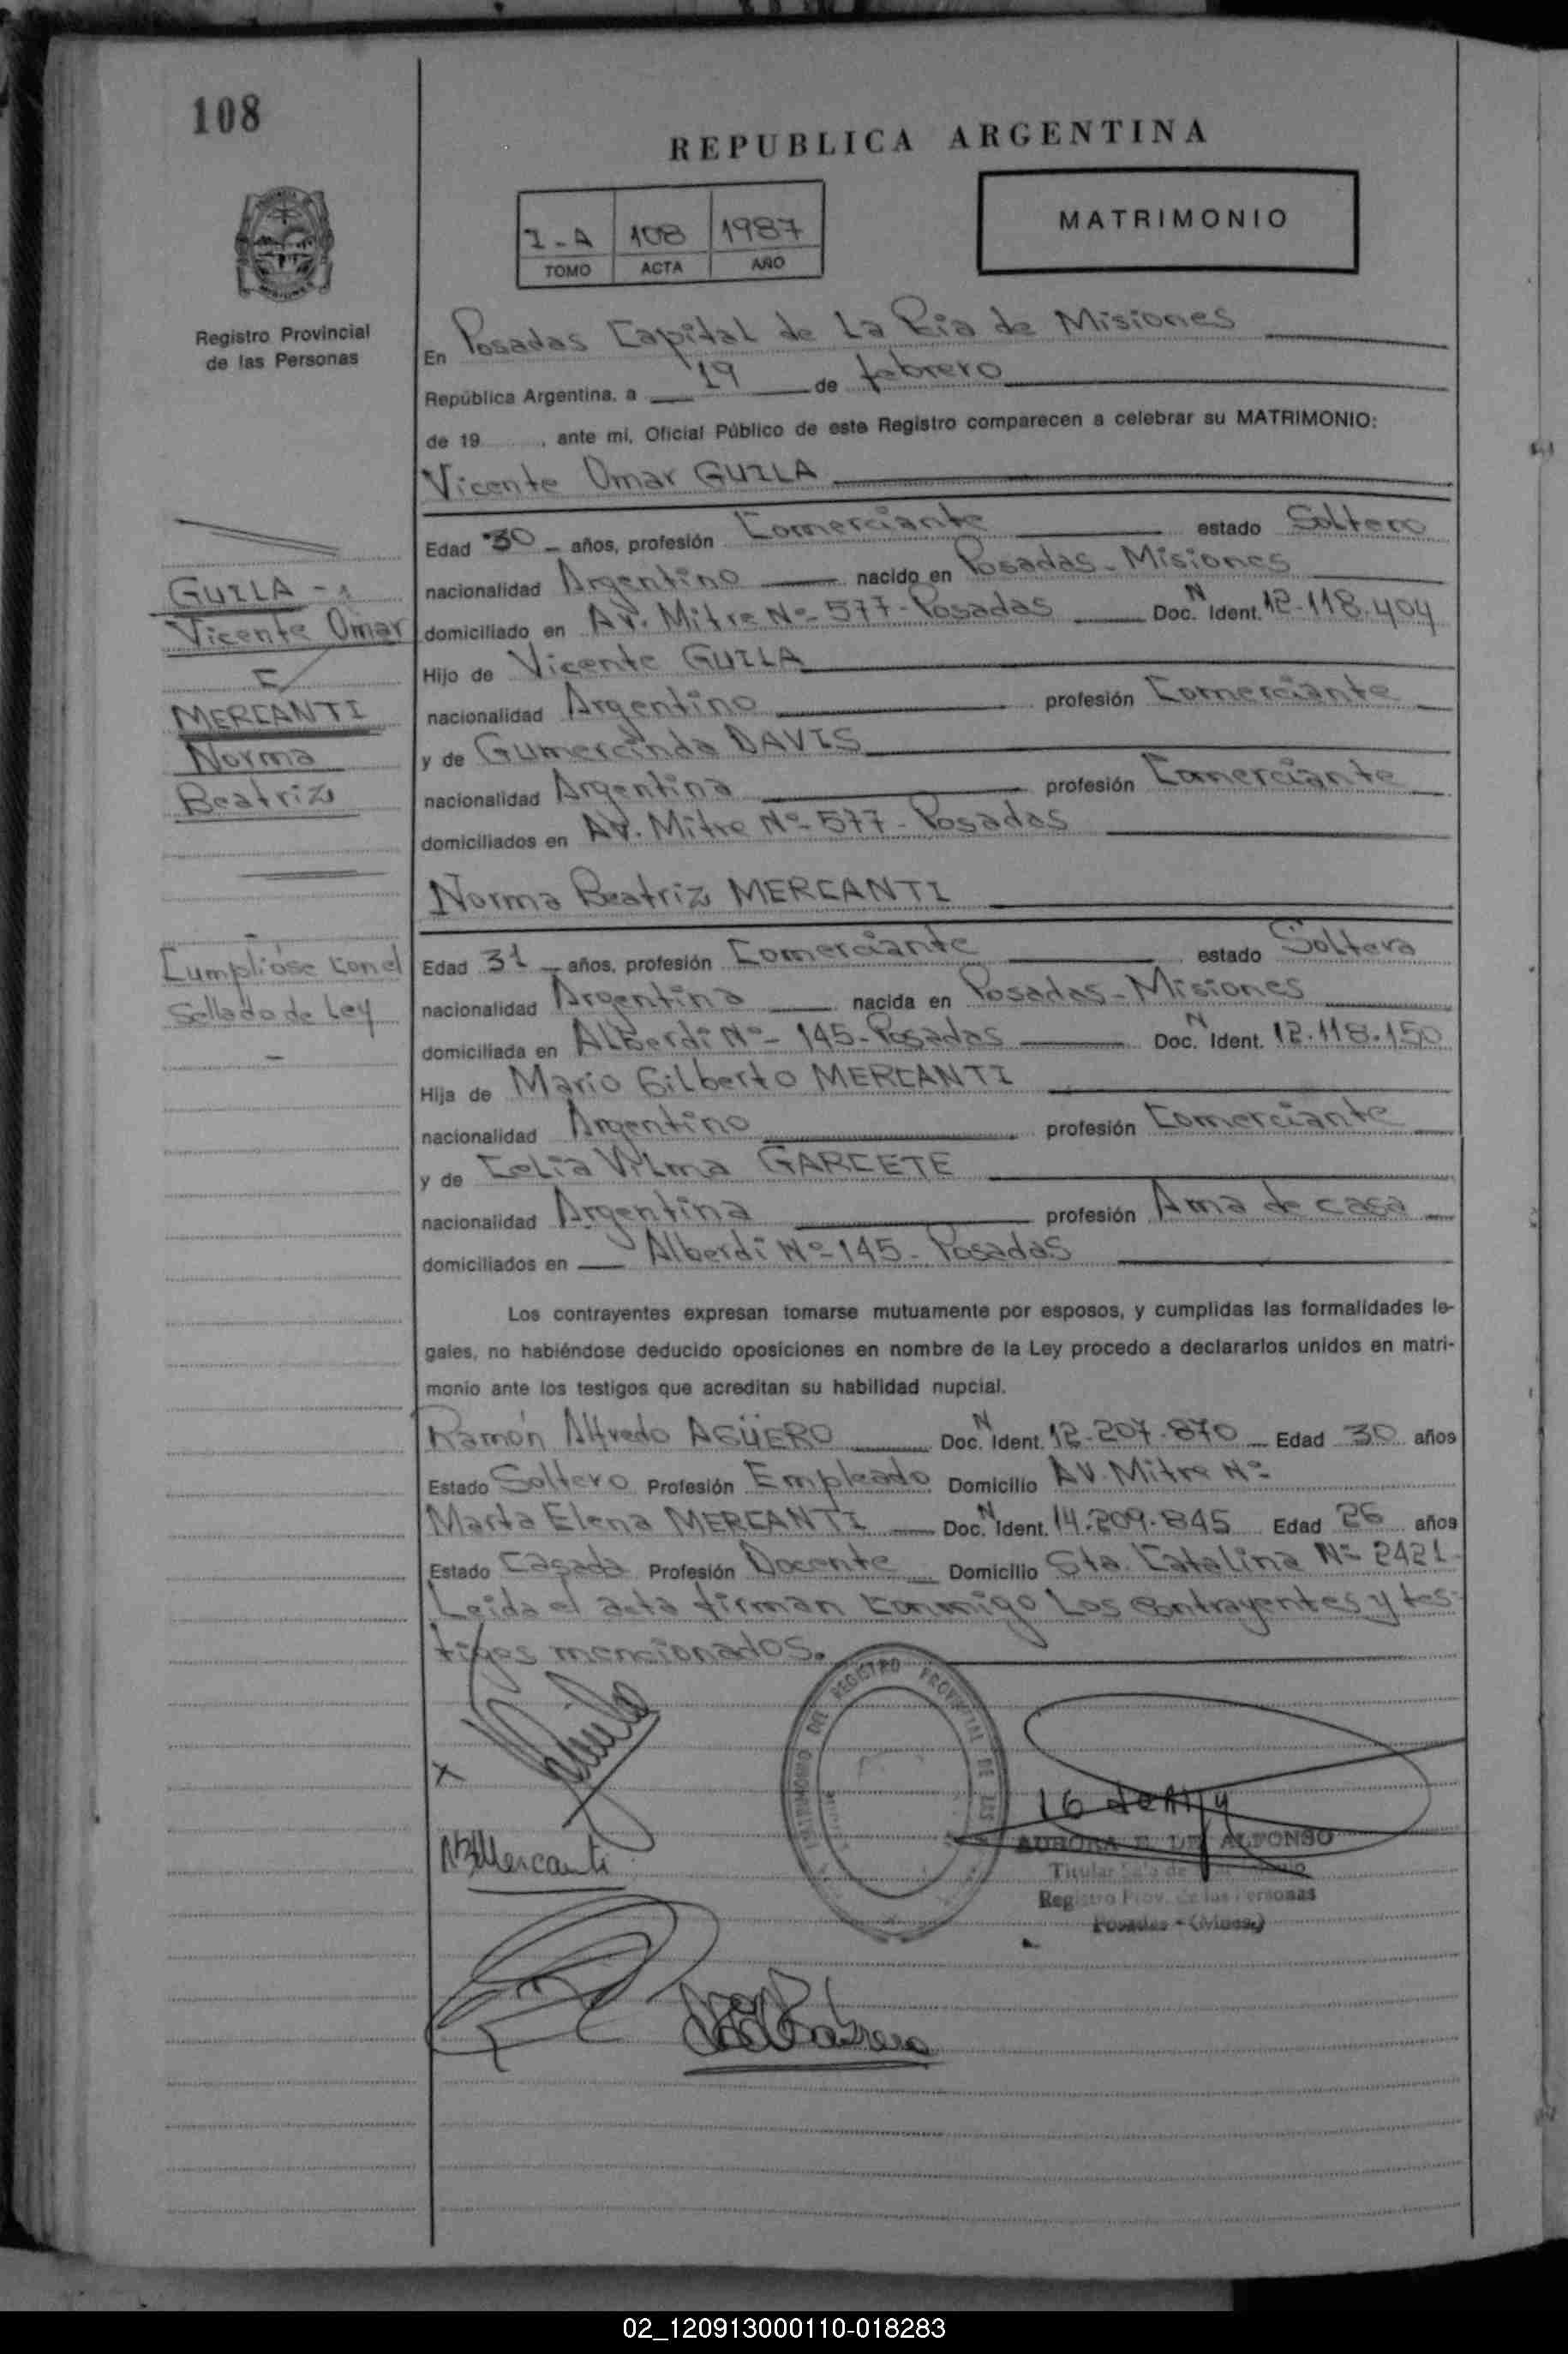 108
REPUBLICA ARGENTINA
I-A 108 1987
TOMO ACTA AÑO
MATRIMONIO
Registro Provincial
de las Personas
En Posadas Capital de La Pcia de Misiones
República Argentina, a 19 de febrero
de 19 , ante mí, Oficial Público de este Registro comparecen a celebrar su MATRIMONIO:
Vicente Omar GUILA
Edad 30 - años, profesión Comerciante estado Soltero
nacionalidad Argentino nacido en Posadas - Misiones
domiciliado en AV. Mitre Nº- 577 - Posadas Doc. N Ident. 12.118.404
Hijo de Vicente GUILA
nacionalidad Argentino profesión Comerciante
y de Gumercinda DAVIS
nacionalidad Argentina profesión Comerciante
domiciliados en AV. Mitre Nº- 577 - Posadas
GUILA -
Vicente Omar
MERCANTI
Norma
Beatriz
Norma Beatriz MERCANTI
Edad 31 - años, profesión Comerciante estado Soltera
nacionalidad Argentina nacida en Posadas - Misiones
domiciliada en Alberdi Nº- 145 - Posadas Doc. N Ident. 12.118.150
Hija de Mario Gilberto MERCANTI
nacionalidad Argentino profesión Comerciante
y de Celia Vilma GARCETE
nacionalidad Argentina profesión Ama de casa
domiciliados en Alberdi Nº- 145 - Posadas
Cumplióse con el
Sellado de Ley
-
Los contrayentes expresan tomarse mutuamente por esposos, y cumplidas las formalidades le-
gales, no habiéndose deducido oposiciones en nombre de la Ley procedo a declararlos unidos en matri-
monio ante los testigos que acreditan su habilidad nupcial.
Ramón Alfredo AGÜERO Doc. N Ident. 12.207.870 Edad 30 años
Estado Soltero Profesión Empleado Domicilio AV. Mitre Nº-
Marta Elena MERCANTI Doc. N Ident. 14.209.845 Edad 26 años
Estado Casada Profesión Docente Domicilio Sta. Catalina Nº- 2421
Leida el acta firman conmigo Los contrayentes y tes-
tigos mencionados.
REGISTRO PROVINCIAL DE LAS
NBMercanti
AURORA E. DE ALFONSO
Titular Sala de
Registro Prov. de las Personas
Posadas - (Mnes.)
02_120913000110-018283